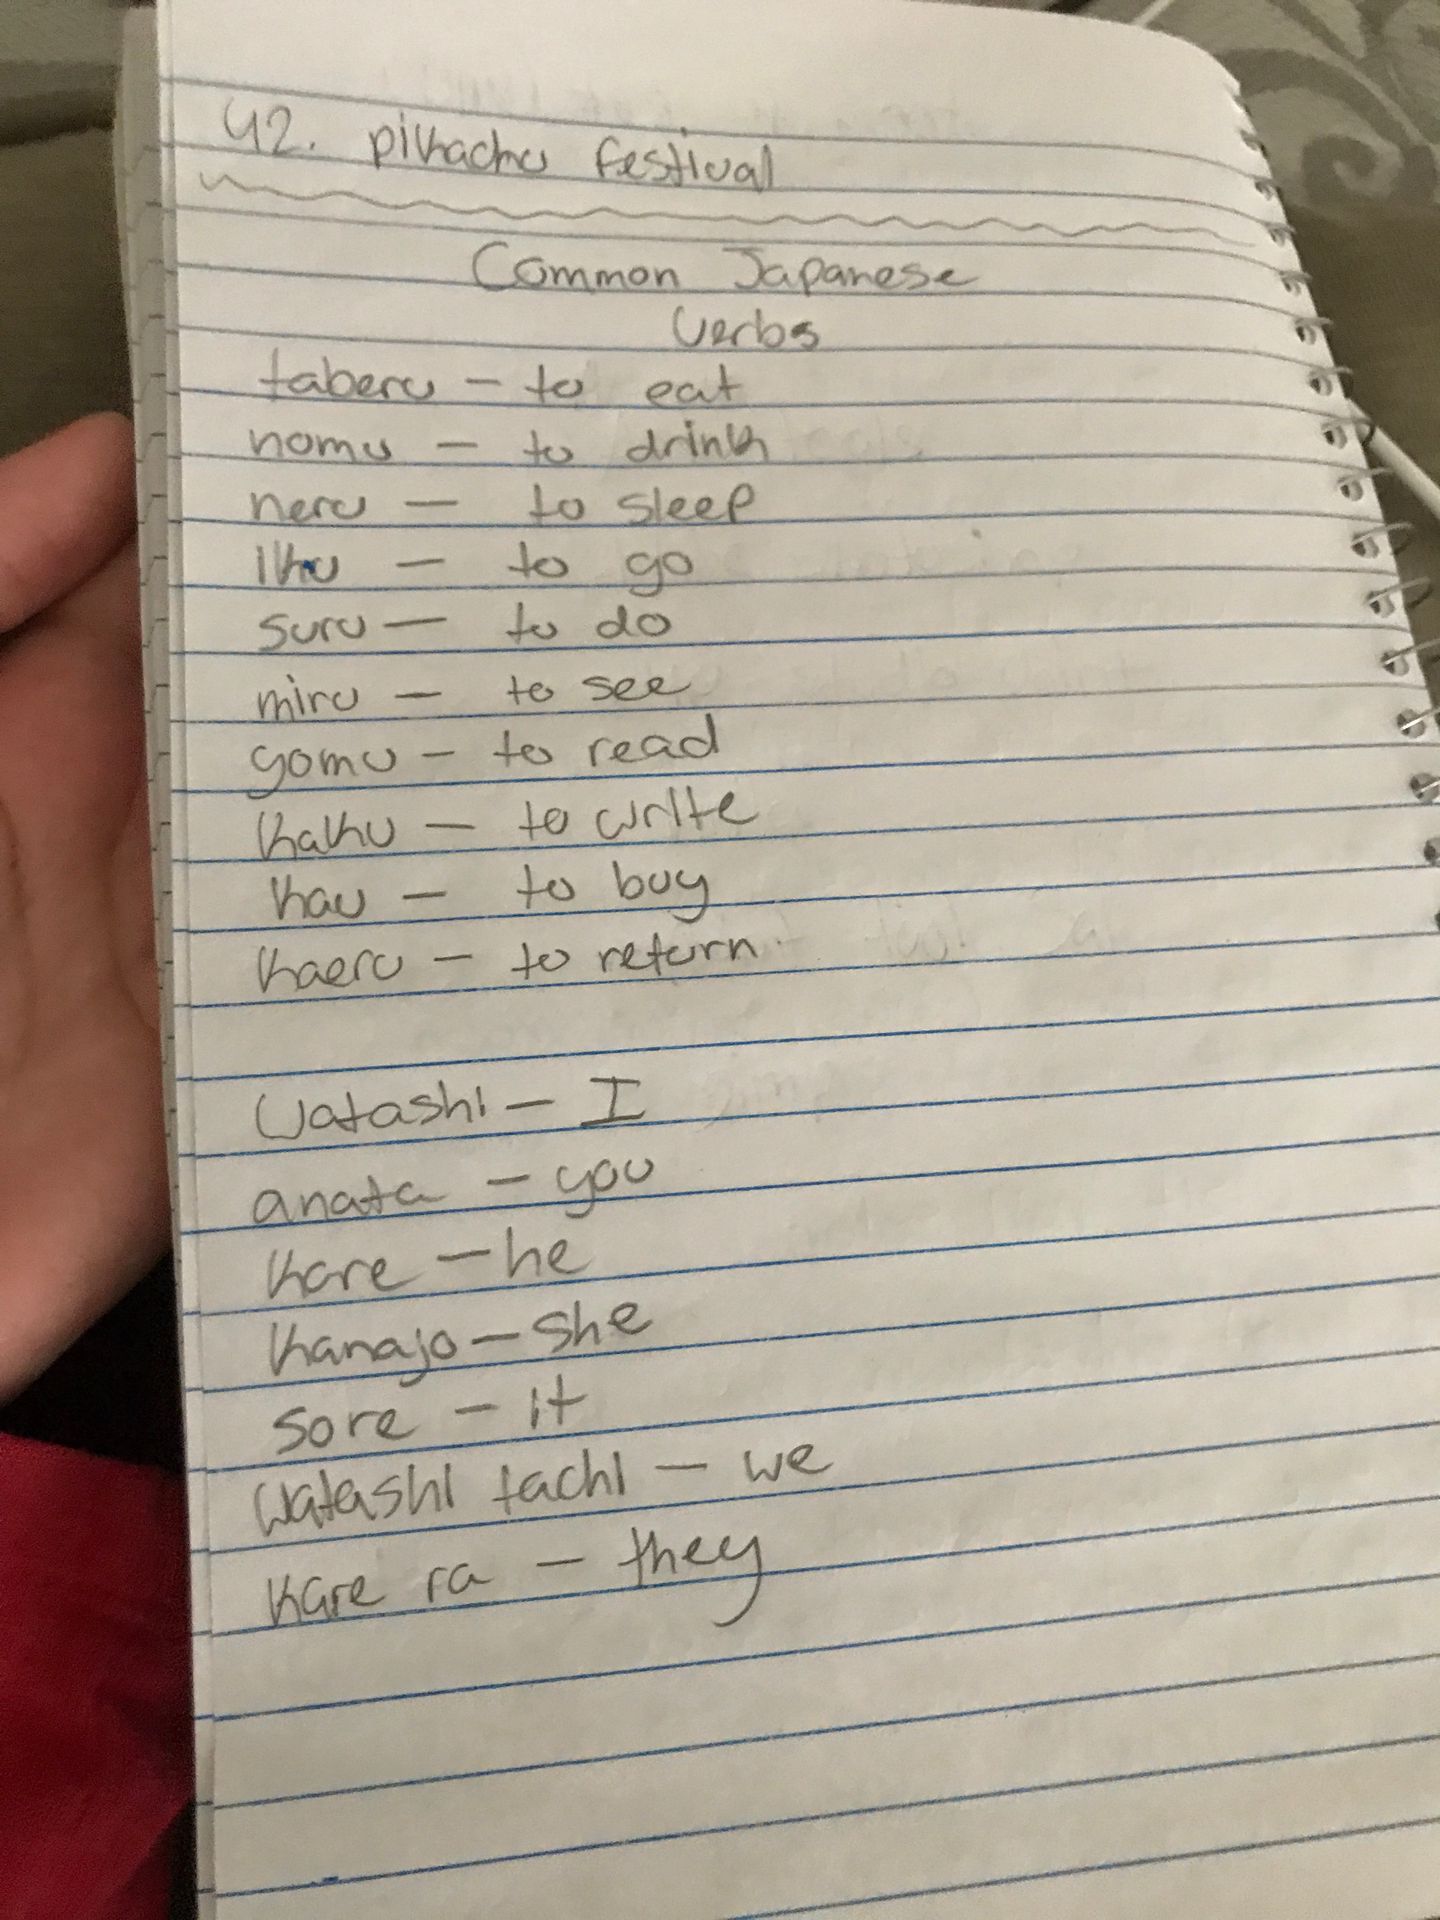 42. pikachu festival
Common Japanese
Verbs
taberu - to eat
nomu - to drink
neru - to sleep
iku - to go
suru - to do
miru - to see
yomu - to read
kaku - to write
kau - to buy
kaeru - to return
Watashi - I
anata - you
kare - he
kanajo - she
sore - it
Watashi tachi - we
kare ra - they